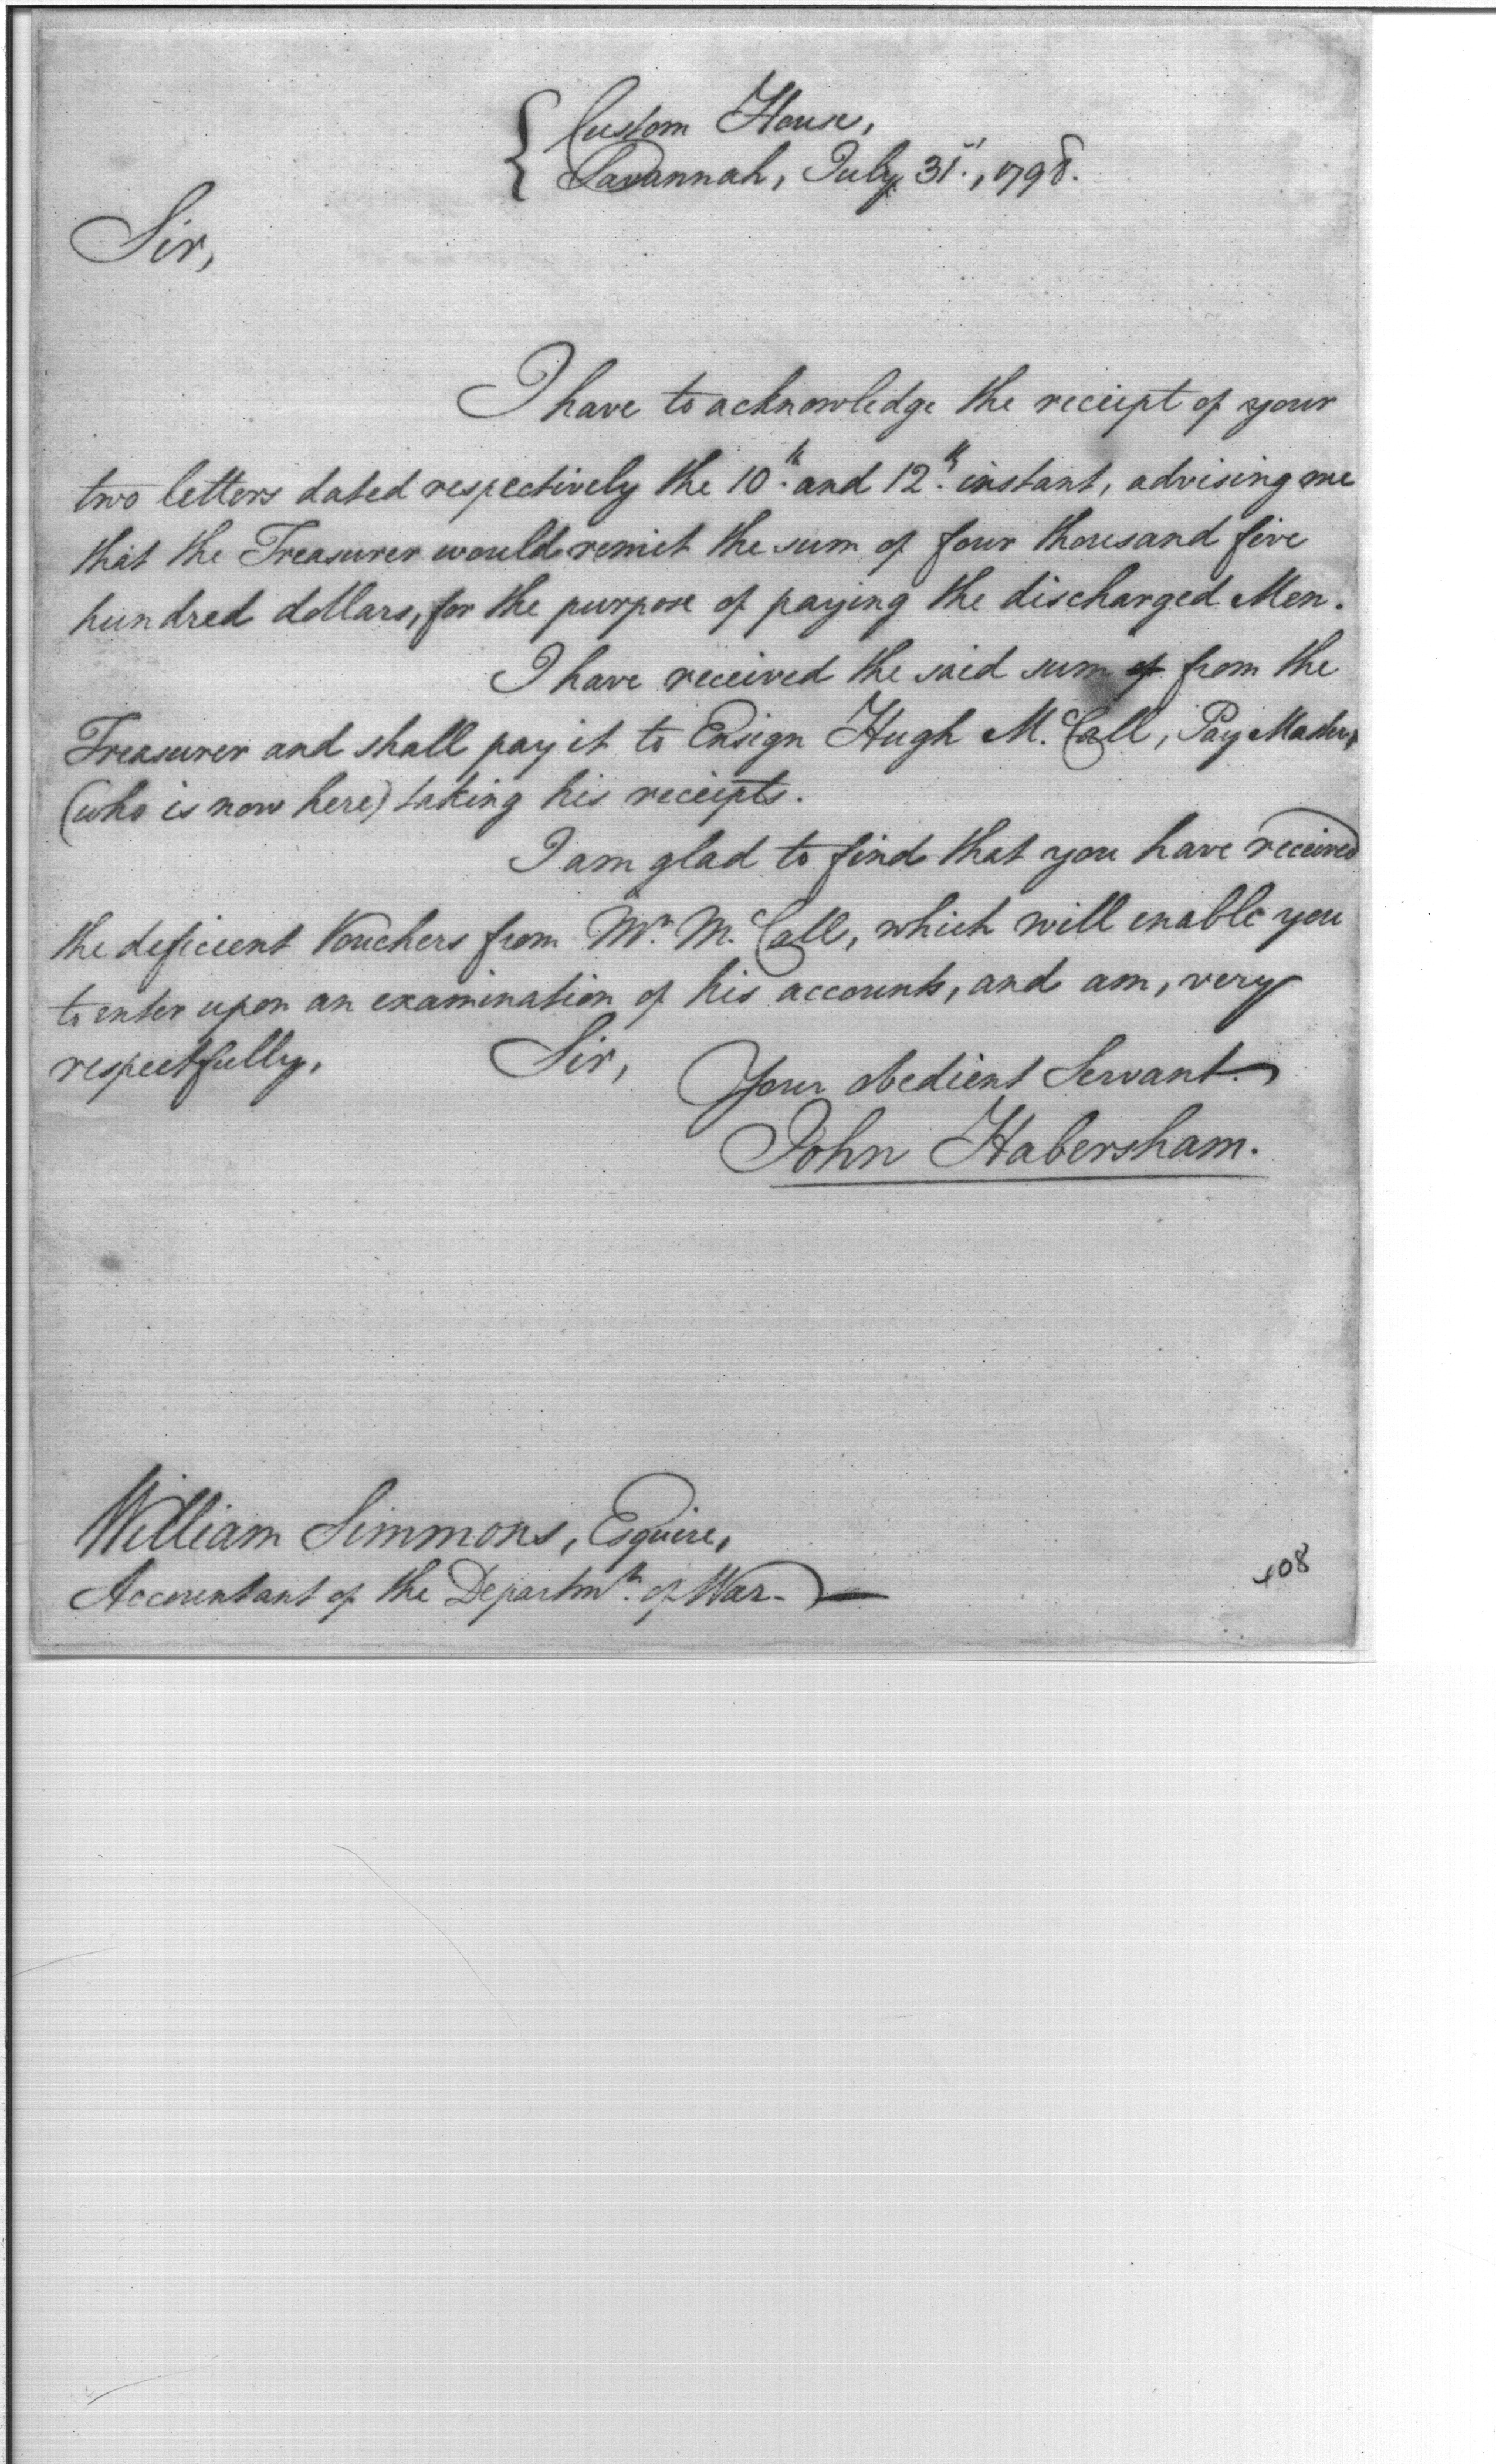 Custom House,
Savannah, July 31st, 1798.
Sir,
I have to acknowledge the receipt of your
two letters dated respectively the 10th. and 12th. instant, advising me
that the Treasurer would remit the sum of four thousand five
hundred dollars, for the purpose of paying the discharged Men.
I have received the said sum of from the
Treasurer and shall pay it to Ensign Hugh Mc.Call, Pay Master,
(who is now here) taking his receipts.
I am glad to find that you have received
the deficient Vouchers from Mr. Mc.Call, which will enable you
to enter upon an examination of his accounts, and am, very
respectfully, Sir,
Your obedient Servant.
John Habersham.
William Simmons, Esquire,
Accountant of the Departmt. of War.
408